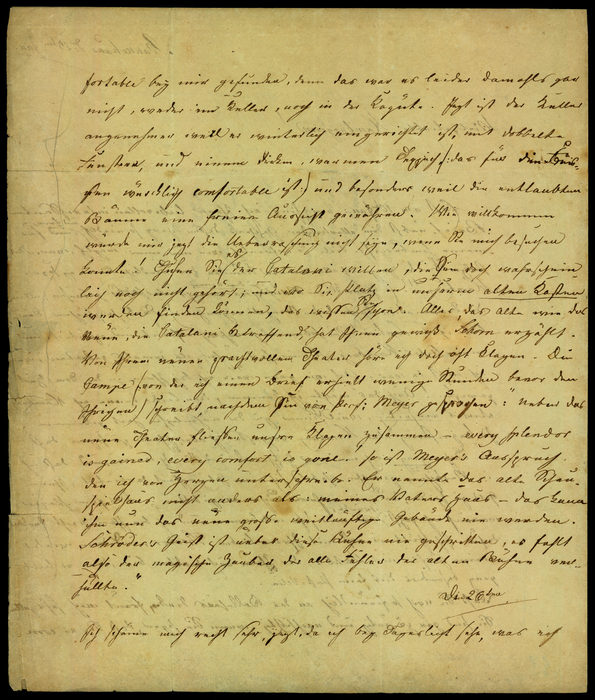 fortable bey mir gefunden, denn das war es leider damahls gar
nicht, weder im Keller, noch in der Kajüte. Jezt ist der Keller
angenehmer weil er winterlich eingerichtet ist, mit dobbelte
Fenstern, und einem dicken warmen Teppich /: das für die Füs-
sen würcklich comfortable ist :/ und besonders weil die entlaubten
Bäume eine freiere Aussicht gewähren. Wie willkommen
würde mir jezt die Ueberraschung nicht seyn, wenn Sie mich besuchen
könnte! Thuen Sie es der Catalani willen, die Sie doch wahrschein
lich noch nicht gehört; und wo Sie Platz in unserm alten Kasten
werden finden können, das wissen Sie schon. Alles, das alte wie das
neue, die Catalani betreffend, hat Ihnen gewiß Schorn erzählt.
Von Ihrem neuen prachtvollen Theater höre ich doch oft klagen. Die
Campe (von der ich einen Brief erhielt wenige Stunden bevor den
Ihrigen) schreibt, nachdem sie von Prof. Meyer gesprochen: Ueber das
neue Theater fliessen unsre Klagen zusammen – every splendor
is gained, every comfort is gone! so ist Meyer's Ausspruch
den ich von Herzen unterschreibe. Er nannte das alte Schau-
spielhaus nicht anders als: meines Vaters Haus – das kann
ihm nun das neue große weitläuftige Gebäude nie werden.
Schröder's Geist ist ueber diese Bühne nie geschritten, es fehlt
also der magische Zauber, der alle Fehler der alten Bühne ver-
hüllte."
Den 26sten
Ich schäme mich recht sehr, jezt, da ich bey Tageslicht sehe, was ich